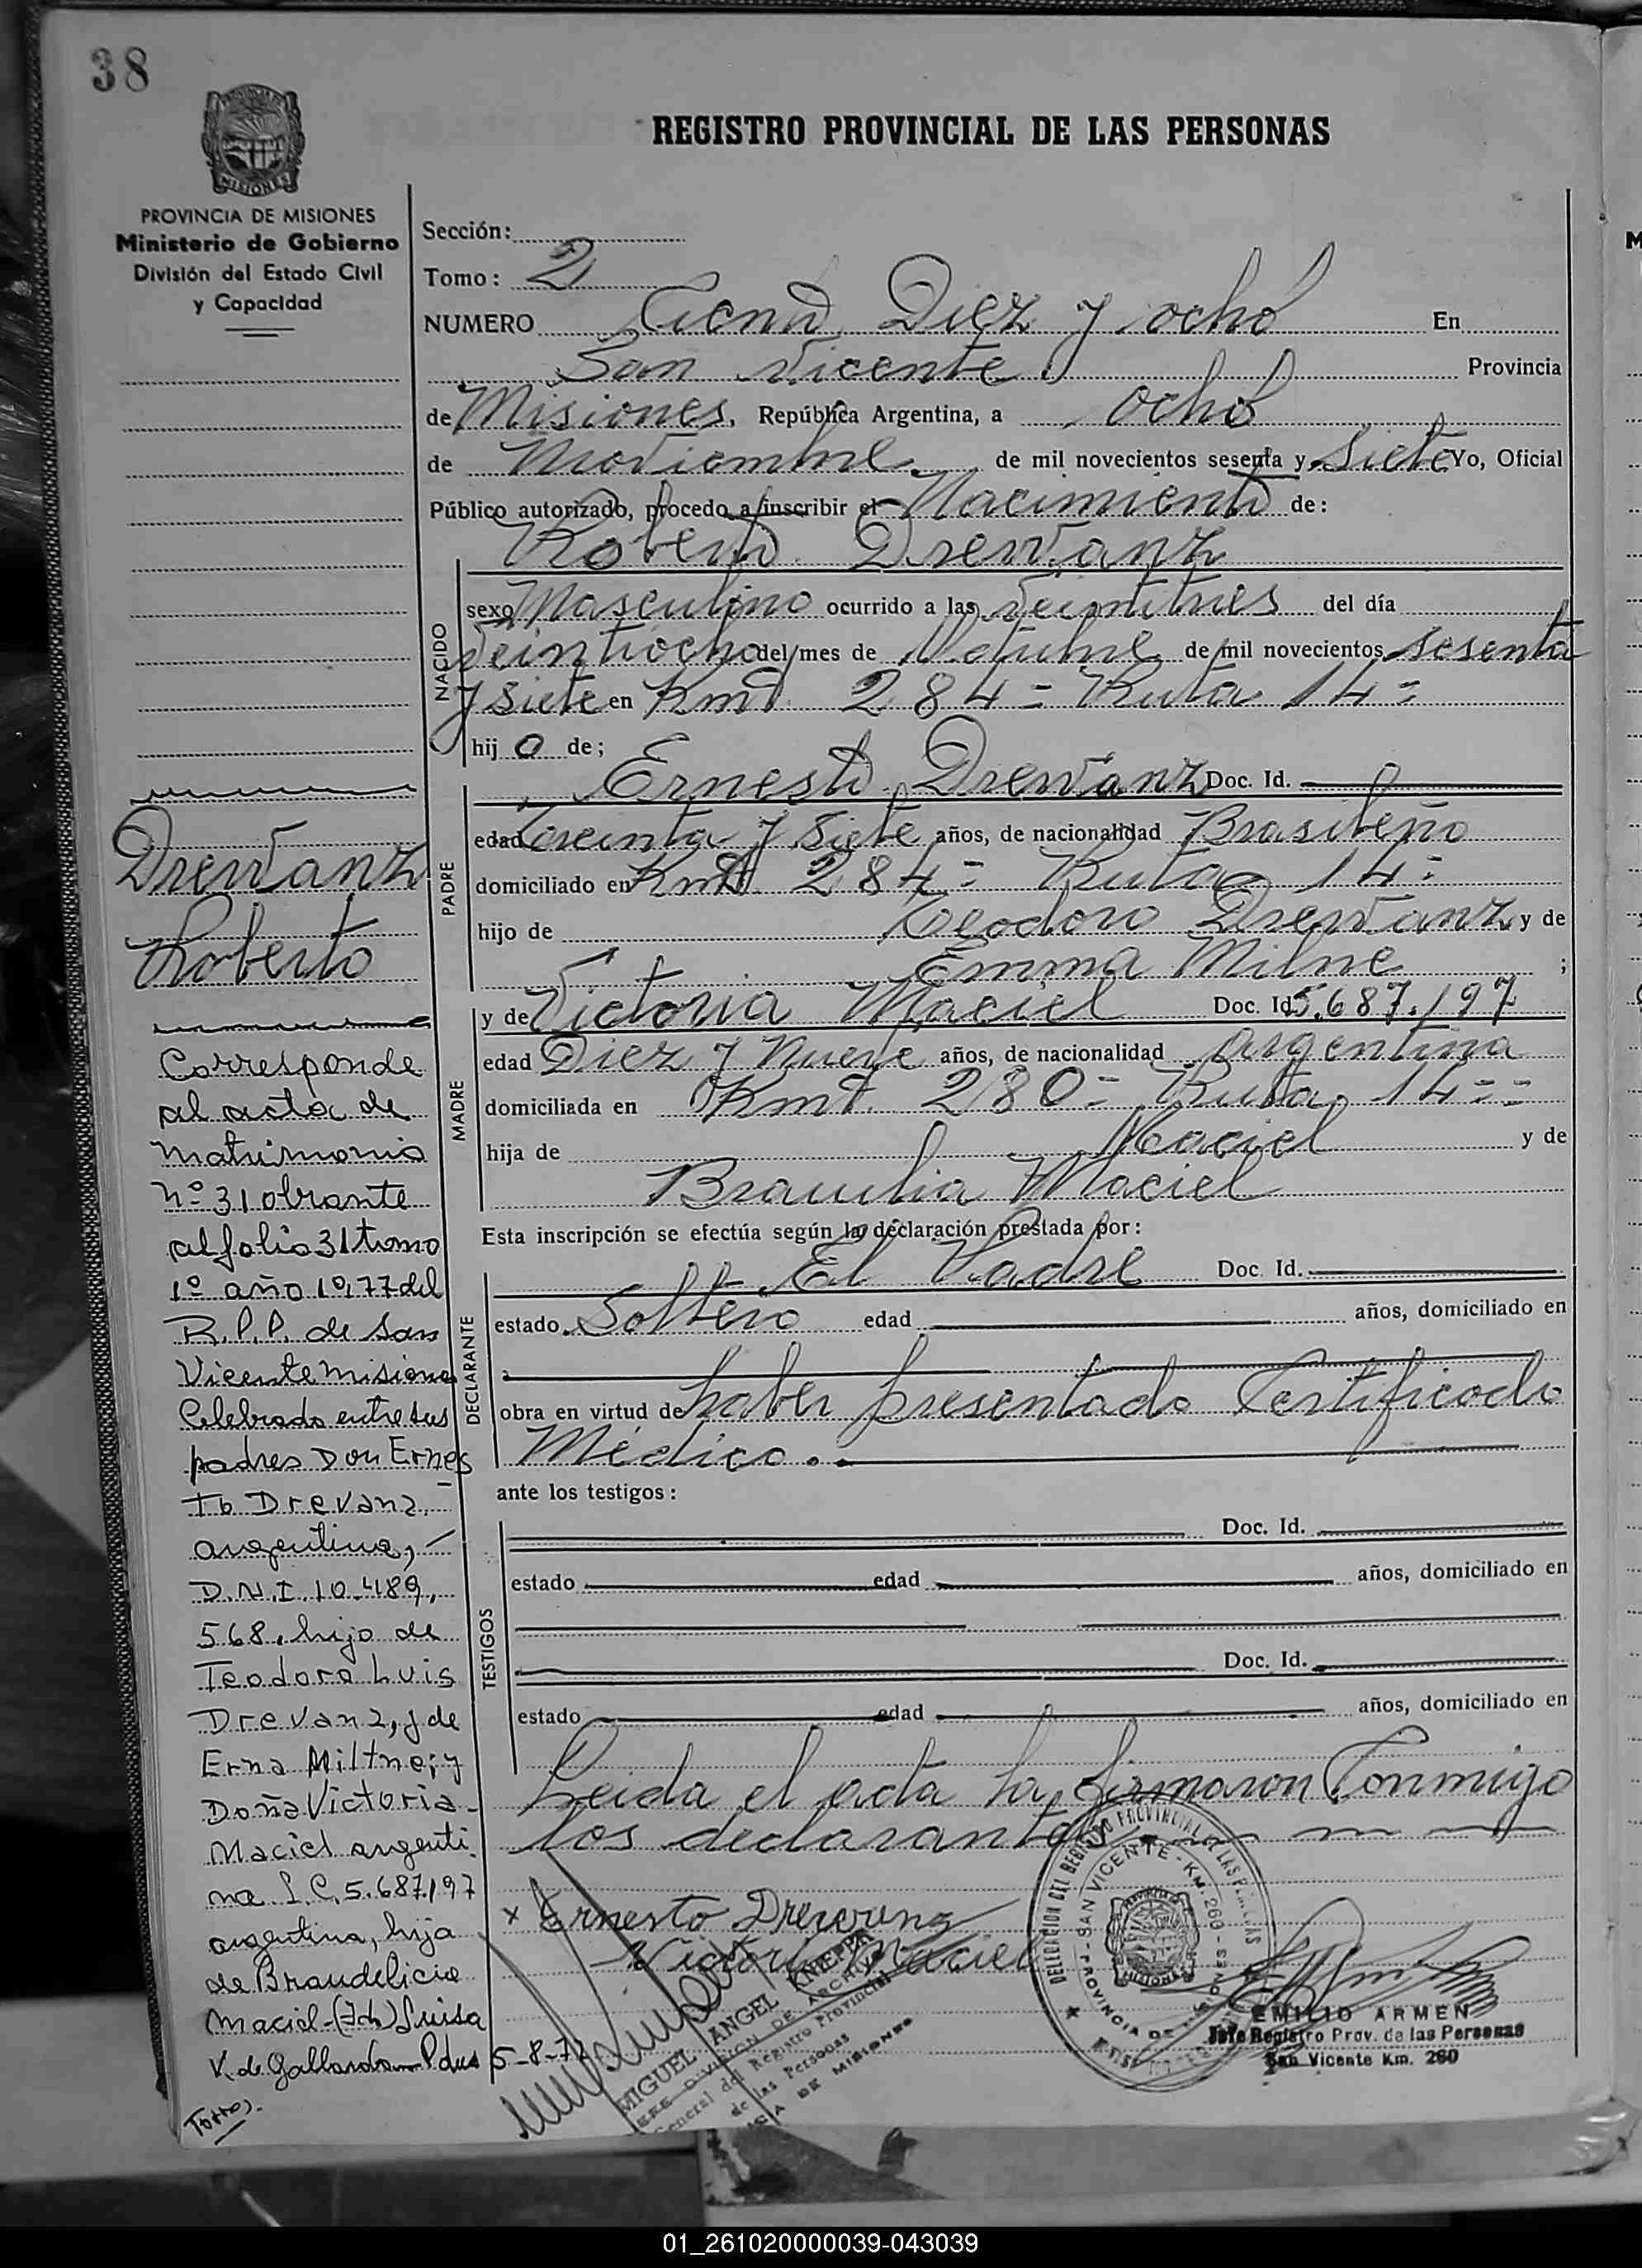 38
REGISTRO PROVINCIAL DE LAS PERSONAS
MISIONES
PROVINCIA DE MISIONES
Ministerio de Gobierno
División del Estado Civil
y Capacidad
Sección:
Tomo: 2
NUMERO Ciento Diez y ocho En
San Vicente Provincia
de Misiones, República Argentina, a ocho
de Noviembre de mil novecientos sesenta y Siete Yo, Oficial
Público autorizado, procedo a inscribir el Nacimiento de:
Roberto Drevanz
NACIDO
sexo Masculino ocurrido a las veintitres del día
Veintiocho del mes de Octubre de mil novecientos sesenta
y Siete en Kmt. 284 = Ruta 14 =
hij o de;
PADRE
Ernesto Drevanz Doc. Id.
edad Treinta y Siete años, de nacionalidad Brasileño
domiciliado en Kmt. 284 = Ruta 14 =
hijo de Teodoro Drevanz y de
Emma Milne ;
MADRE
y de Victoria Maciel Doc. Id 5.687.197
edad Diez y Nueve años, de nacionalidad Argentina
domiciliada en Kmt. 280 = Ruta 14 = =
hija de Maciel y de
Braudilia Maciel
Esta inscripción se efectúa según la declaración prestada por:
DECLARANTE
El Padre Doc. Id.
estado Soltero edad años, domiciliado en
obra en virtud de haber presentado Certificado
Médico.
ante los testigos:
TESTIGOS
Doc. Id.
estado edad años, domiciliado en
Doc. Id.
estado edad años, domiciliado en
Leida el acta la firmaron Conmigo
los declarantes
x Ernesto Drewanz
Victoria Maciel
DELEGACION DEL REGISTRO PROVINCIAL DE LAS PERSONAS
SAN VICENTE - KM. 260
PROVINCIA DE MISIONES
EMILIO ARMEN
Jefe Registro Prov. de las Personas
San Vicente Km. 260
MIGUEL ANGEL KNIEPPA
JEFE DIVISION DE ARCHIVO
General del Registro Provincial
de las Personas
PROVINCIA DE MISIONES
Drevanz
Roberto
Corresponde
al acta de
matrimonio
nº 31 obrante
al folio 31 tomo
1º año 1977 del
R.P.P. de San
Vicente Misiones
Celebrado entre sus
padres Don Ernes
to Drevanz,
argentino,
D.N.I. 10.489,
568, hijo de
Teodoro Luis
Drevanz, y de
Erna Miltne; y
Doña Victoria
Maciel argenti
na L.C. 5.687.197
argentina, hija
de Braudelicia
Maciel - Luisa
V. de Gallardo Pdas 5-8-77
01_261020000039-043039